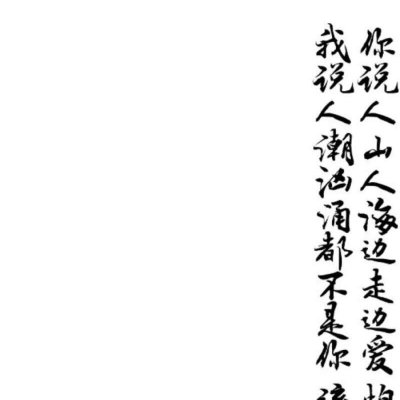 你说人山人海边走边爱
我说人潮汹涌都不是你